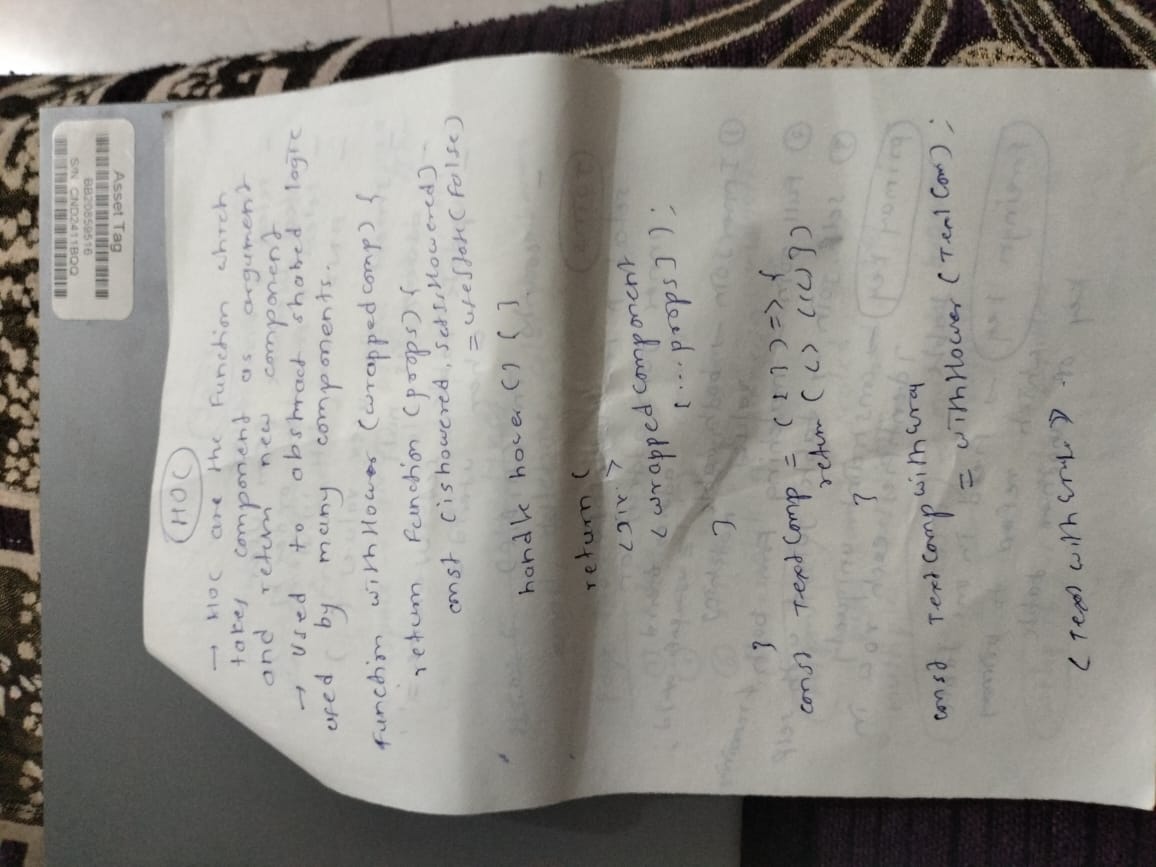 Asset Tag
8B20859516
SN CND2411BDQ
HOC
→ HOC are the function which
takes component as argument
and return new component
→ used to abstract shared logic
used by many components.
function withHower (wrappedcomp) {
return function (props) {
const (ishowered, setisHowered)
= useState(false)
handle hover () { }
return (
<div>
<wrapped component
{...props} );
}
}
const TextComp = ( ) => {
return (
}
const TextComp with
= withHower (TextCom);